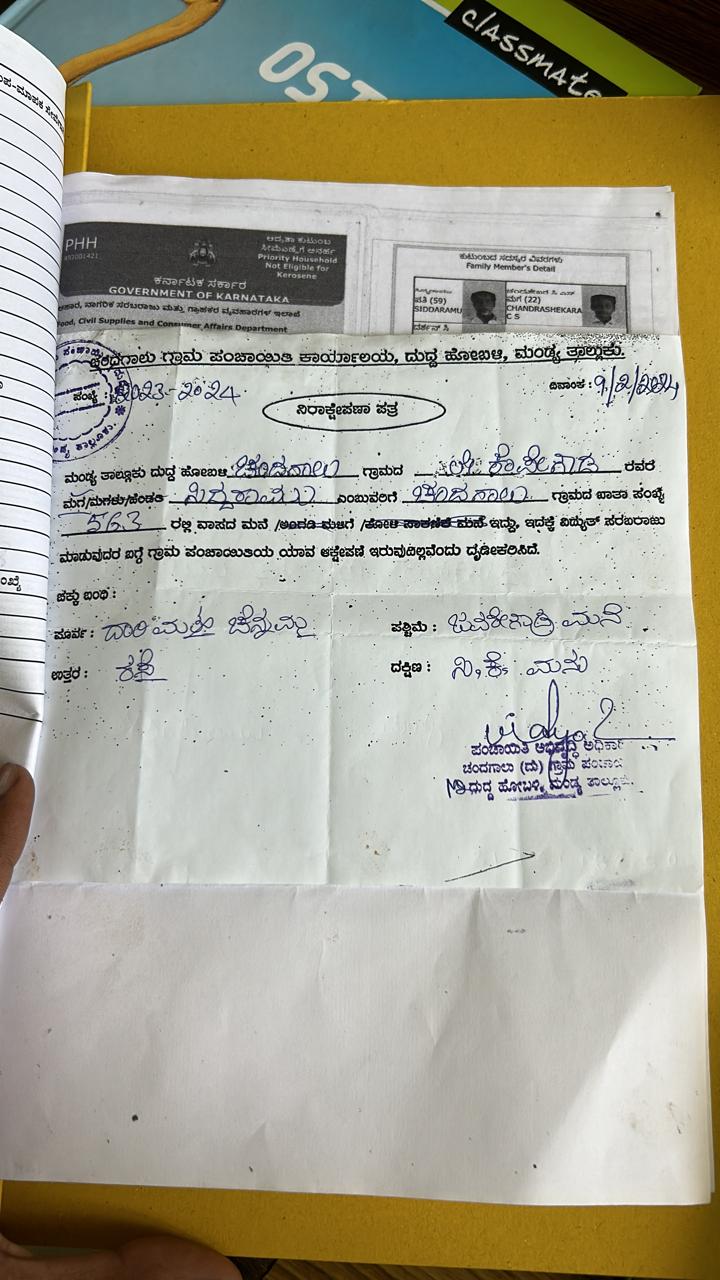 classmate
OST
PHH
ಆದ್ಯತಾ ಕುಟುಂಬ
ಸೀಮೆಎಣ್ಣೆಗೆ ಅನರ್ಹ
Priority Household
Not Eligible for
Kerosene
ಕರ್ನಾಟಕ ಸರ್ಕಾರ
GOVERNMENT OF KARNATAKA
ನಾಗರಿಕ ಸರಬರಾಜು ಮತ್ತು ಗ್ರಾಹಕರ ವ್ಯವಹಾರಗಳ ಇಲಾಖೆ
Food, Civil Supplies and Consumer Affairs Department
ಕುಟುಂಬದ ಸದಸ್ಯರ ವಿವರಗಳು
Family Member's Detail
ಪತಿ (59)
SIDDARAMU
ಮಗ (22)
CHANDRASHEKARA
C S
ಚಂದಗಾಲು ಗ್ರಾಮ ಪಂಚಾಯಿತಿ ಕಾರ್ಯಾಲಯ, ದುದ್ದ ಹೋಬಳಿ, ಮಂಡ್ಯ ತಾಲ್ಲೂಕು.
ಸಂಖ್ಯೆ : 2023-2024 ದಿನಾಂಕ : 9/2/2024
ನಿರಾಕ್ಷೇಪಣಾ ಪತ್ರ
ಮಂಡ್ಯ ತಾಲ್ಲೂಕು ದುದ್ದ ಹೋಬಳಿ ಚಂದಗಾಲು ಗ್ರಾಮದ ರವರ
ಮಗ/ಮಗಳು/ಹೆಂಡತಿ ಸಿದ್ದರಾಮು ಎಂಬುವರಿಗೆ ಚಂದಗಾಲು ಗ್ರಾಮದ ಖಾತಾ ಸಂಖ್ಯೆ
563 ರಲ್ಲಿ ವಾಸದ ಮನೆ /ಅಂಗಡಿ ಮಳಿಗೆ /ಕೋಳಿ ಸಾಕಣಿಕೆ ಮನೆ ಇದ್ದು, ಇದಕ್ಕೆ ವಿದ್ಯುತ್ ಸರಬರಾಜು
ಮಾಡುವುದರ ಬಗ್ಗೆ ಗ್ರಾಮ ಪಂಚಾಯಿತಿಯ ಯಾವ ಆಕ್ಷೇಪಣೆ ಇರುವುದಿಲ್ಲವೆಂದು ದೃಢೀಕರಿಸಿದೆ.
ಚಕ್ಕು ಬಂಧಿ :
ಪೂರ್ವ : ದಾರಿ ಮತ್ತು ಪಶ್ಚಿಮ : ಮನೆ
ಉತ್ತರ : ದಕ್ಷಿಣ : ಸಿ.ಕೆ.
ಪಂಚಾಯಿತಿ ಅಭಿವೃದ್ಧಿ ಅಧಿಕಾರಿ
ಚಂದಗಾಲು (ದು) ಗ್ರಾಮ ಪಂಚಾಯಿತಿ
ದುದ್ದ ಹೋಬಳಿ, ಮಂಡ್ಯ ತಾಲ್ಲೂಕು.